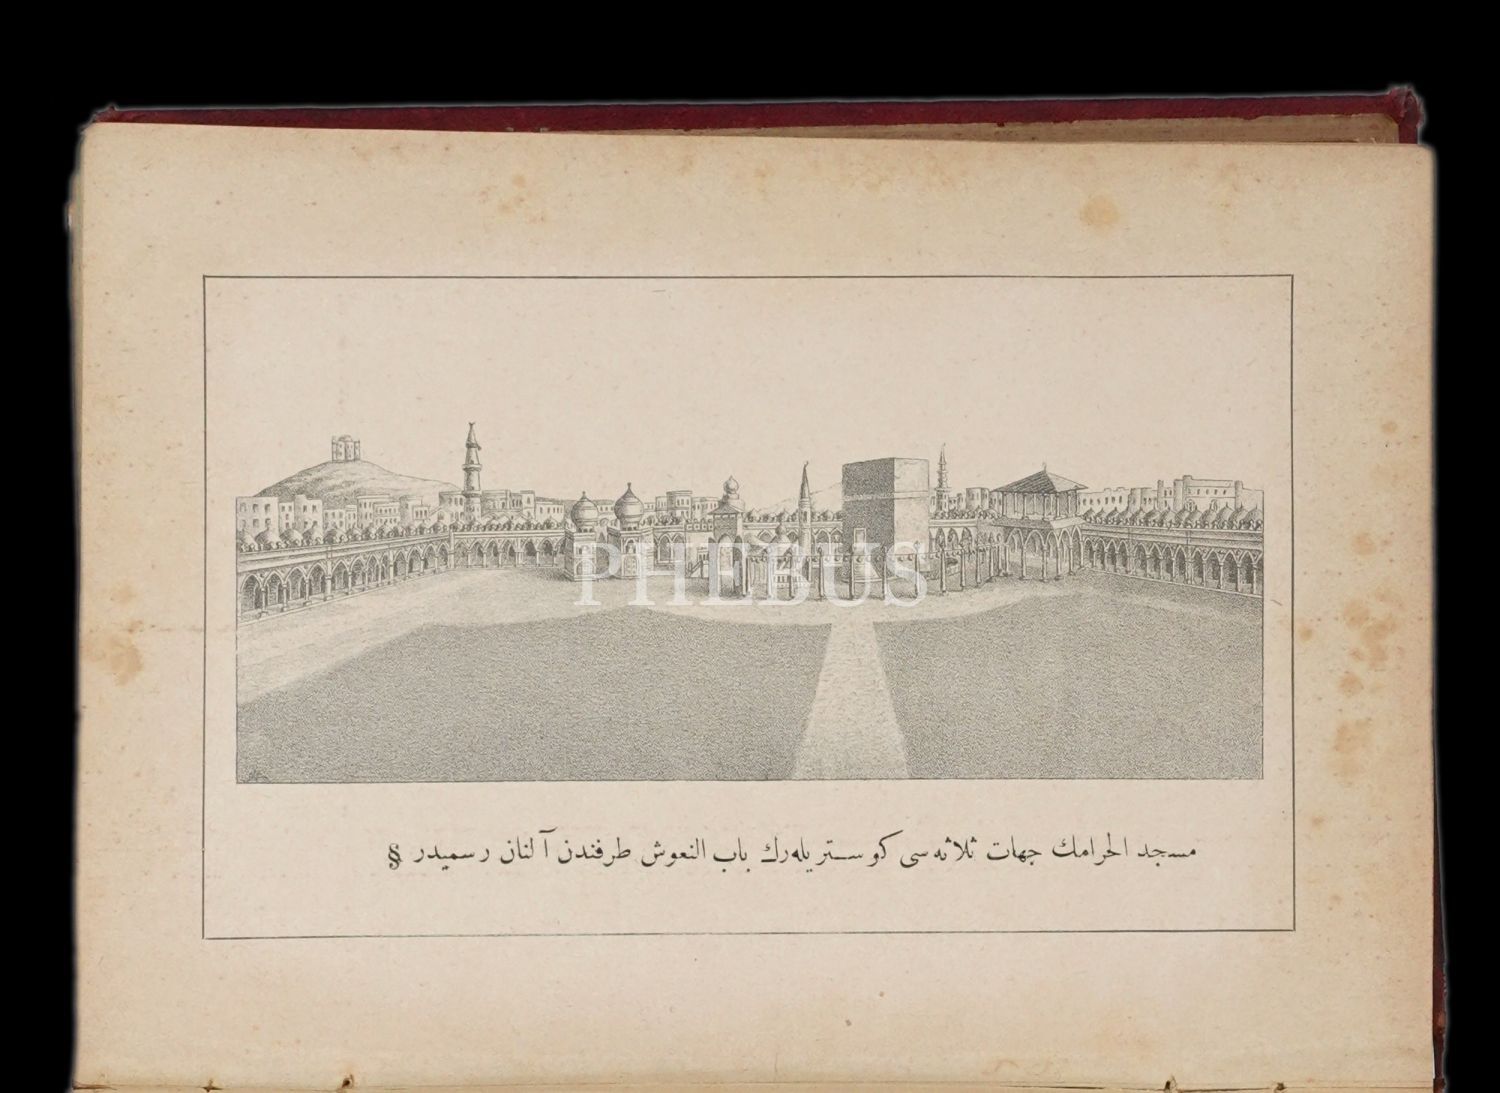 PHEBUS
مسجد الحرامك جهات ثلاثه سی كوستريله‌رك باب النعوش طرفندن آلنان رسميدر §